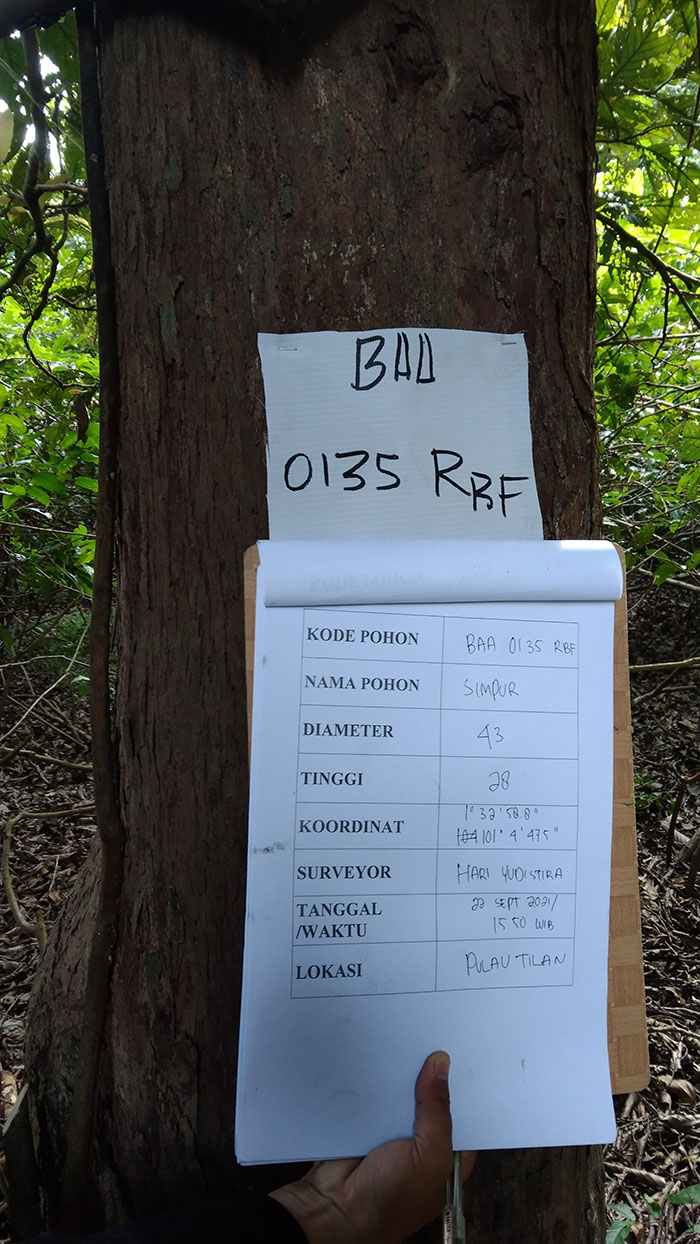 BAA
0135 RBF
KODE POHON BAA 0135 RBF
NAMA POHON SIMPUR
DIAMETER 43
TINGGI 28
KOORDINAT 1° 32' 58.8"
101° 4' 475"
SURVEYOR HARI YUDISTIRA
TANGGAL 22 SEPT 2021/
/WAKTU 15.50 WIB
LOKASI PULAU TILAN